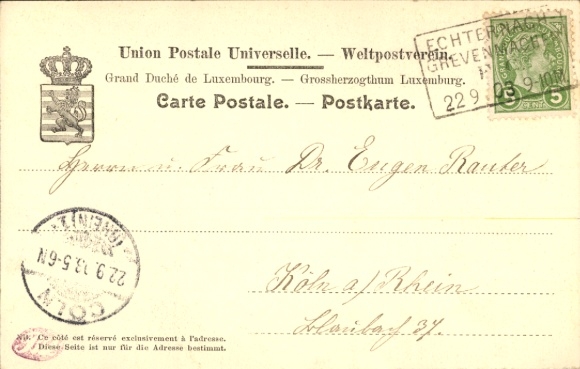 Union Postale Universelle. — Weltpostverein.
Grand Duché de Luxembourg. — Grossherzogthum Luxemburg.
Carte Postale. — Postkarte.
ECHTERNACH
GREVENMACHER
22 9 03 9-10
5 5
Herrn u. Frau Dr. Eugen Rauber
CÖLN
(RHEIN) 1
22.9.03.5-6N
Köln a/Rhein
Blaubach 37.
NB. Ce côté est réservé exclusivement à l'adresse.
Diese Seite ist nur für die Adresse bestimmt.